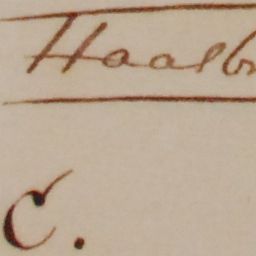 Haasb
C.